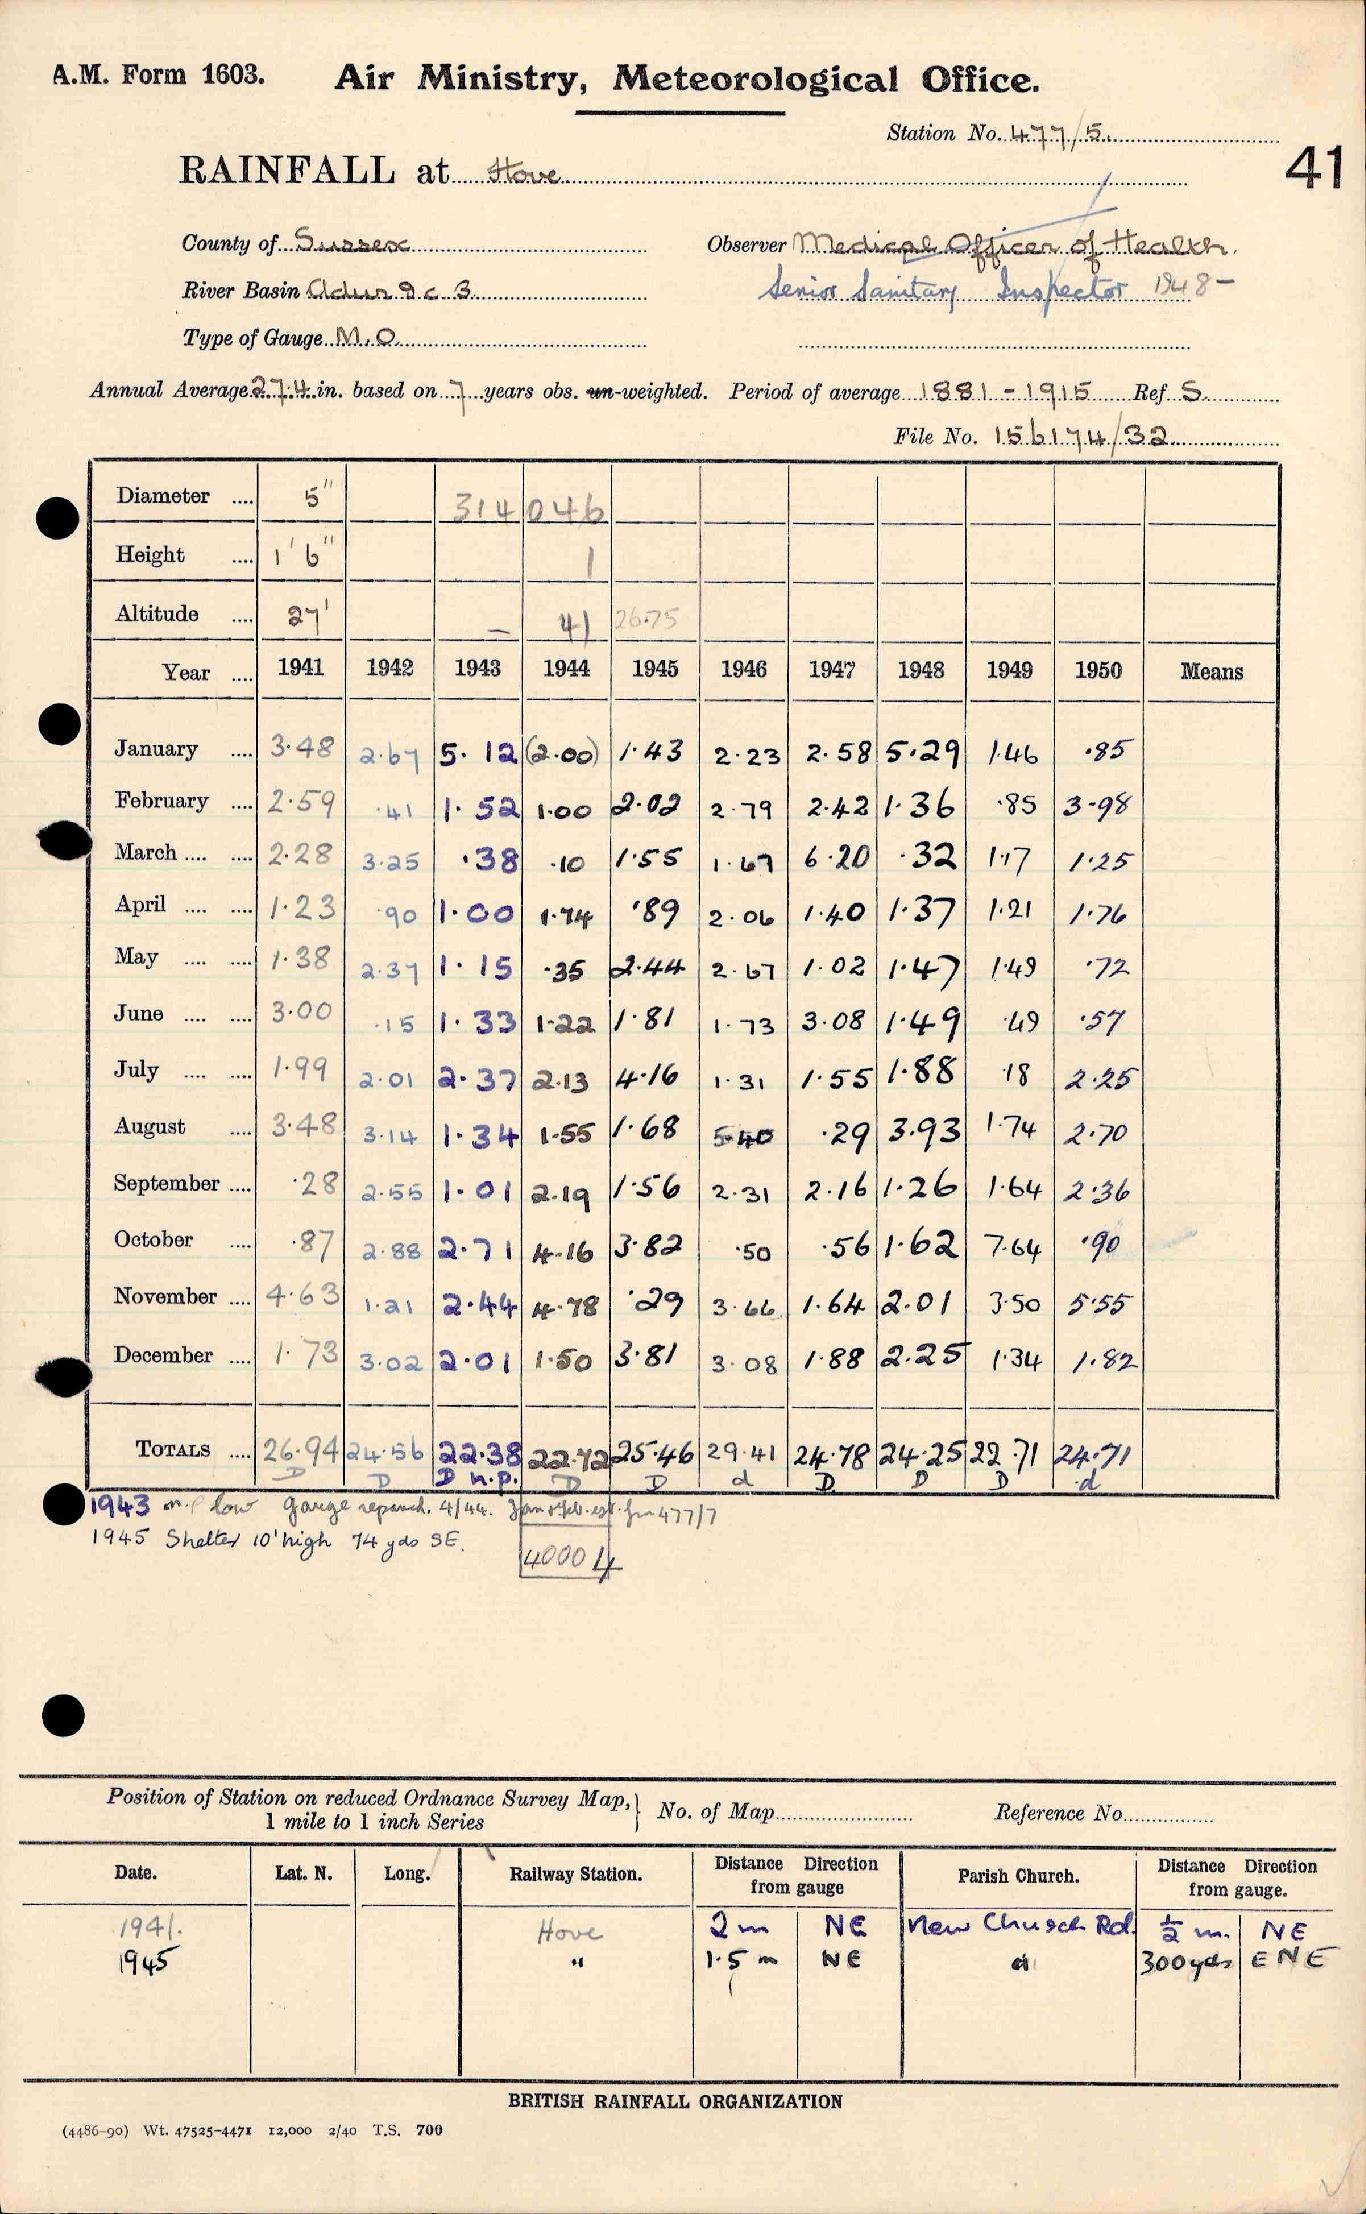 A.M. Form 1603. Air Ministry, Meteorological Office.
Station No. 477/5.
41
RAINFALL at Hove
County of Sussex Observer Medical Officer of Health.
River Basin Adur &c 3 Senior Sanitary Inspector 1948-
Type of Gauge M.O.
Annual Average 27.4 in. based on 7 years obs. un-weighted. Period of average 1881-1915 Ref S.
File No. 156174/32
Diameter .... 5" 314046
Height .... 1'6" 1
Altitude .... 27' - 41 26.75
Year .... 1941 1942 1943 1944 1945 1946 1947 1948 1949 1950 Means
January .... 3.48 2.67 5.12 (2.00) 1.43 2.23 2.58 5.29 1.46 .85
February .... 2.59 .41 1.52 1.00 2.02 2.79 2.42 1.36 .85 3.98
March .... .... 2.28 3.25 .38 .10 1.55 1.67 6.20 .32 1.17 1.25
April .... .... 1.23 .90 1.00 1.74 .89 2.06 1.40 1.37 1.21 1.76
May .... .... 1.38 2.37 1.15 .35 2.44 2.67 1.02 1.47 1.49 .72
June .... .... 3.00 .15 1.33 1.22 1.81 1.73 3.08 1.49 .49 .57
July .... .... 1.99 2.01 2.37 2.13 4.16 1.31 1.55 1.88 .18 2.25
August .... 3.48 3.14 1.34 1.55 1.68 5.40 .29 3.93 1.74 2.70
September .... .28 2.55 1.01 2.19 1.56 2.31 2.16 1.26 1.64 2.36
October .... .87 2.88 2.71 4.16 3.82 .50 .56 1.62 7.64 .90
November .... 4.63 1.21 2.44 4.78 .29 3.66 1.64 2.01 3.50 5.55
December .... 1.73 3.02 2.01 1.50 3.81 3.08 1.88 2.25 1.34 1.82
TOTALS .... 26.94 24.56 22.38 22.72 25.46 29.41 24.78 24.25 22.71 24.71
D D D n.p. D D d D D D d
1943 low gauge 4/44. Jan & Feb. est. fm 477/7
1945 Shelter 10' high 74 yds SE.
40004
Position of Station on reduced Ordnance Survey Map, 1 mile to 1 inch Series } No. of Map Reference No.
Date. Lat. N. Long. Railway Station. Distance Direction from gauge Parish Church. Distance Direction from gauge.
1941. Hove 2 m NE New Church Rd. ½ m. NE
1945 " 1.5 m NE 300 yds ENE
BRITISH RAINFALL ORGANIZATION
(4486-90) Wt. 47525-4471 12,000 2/40 T.S. 700